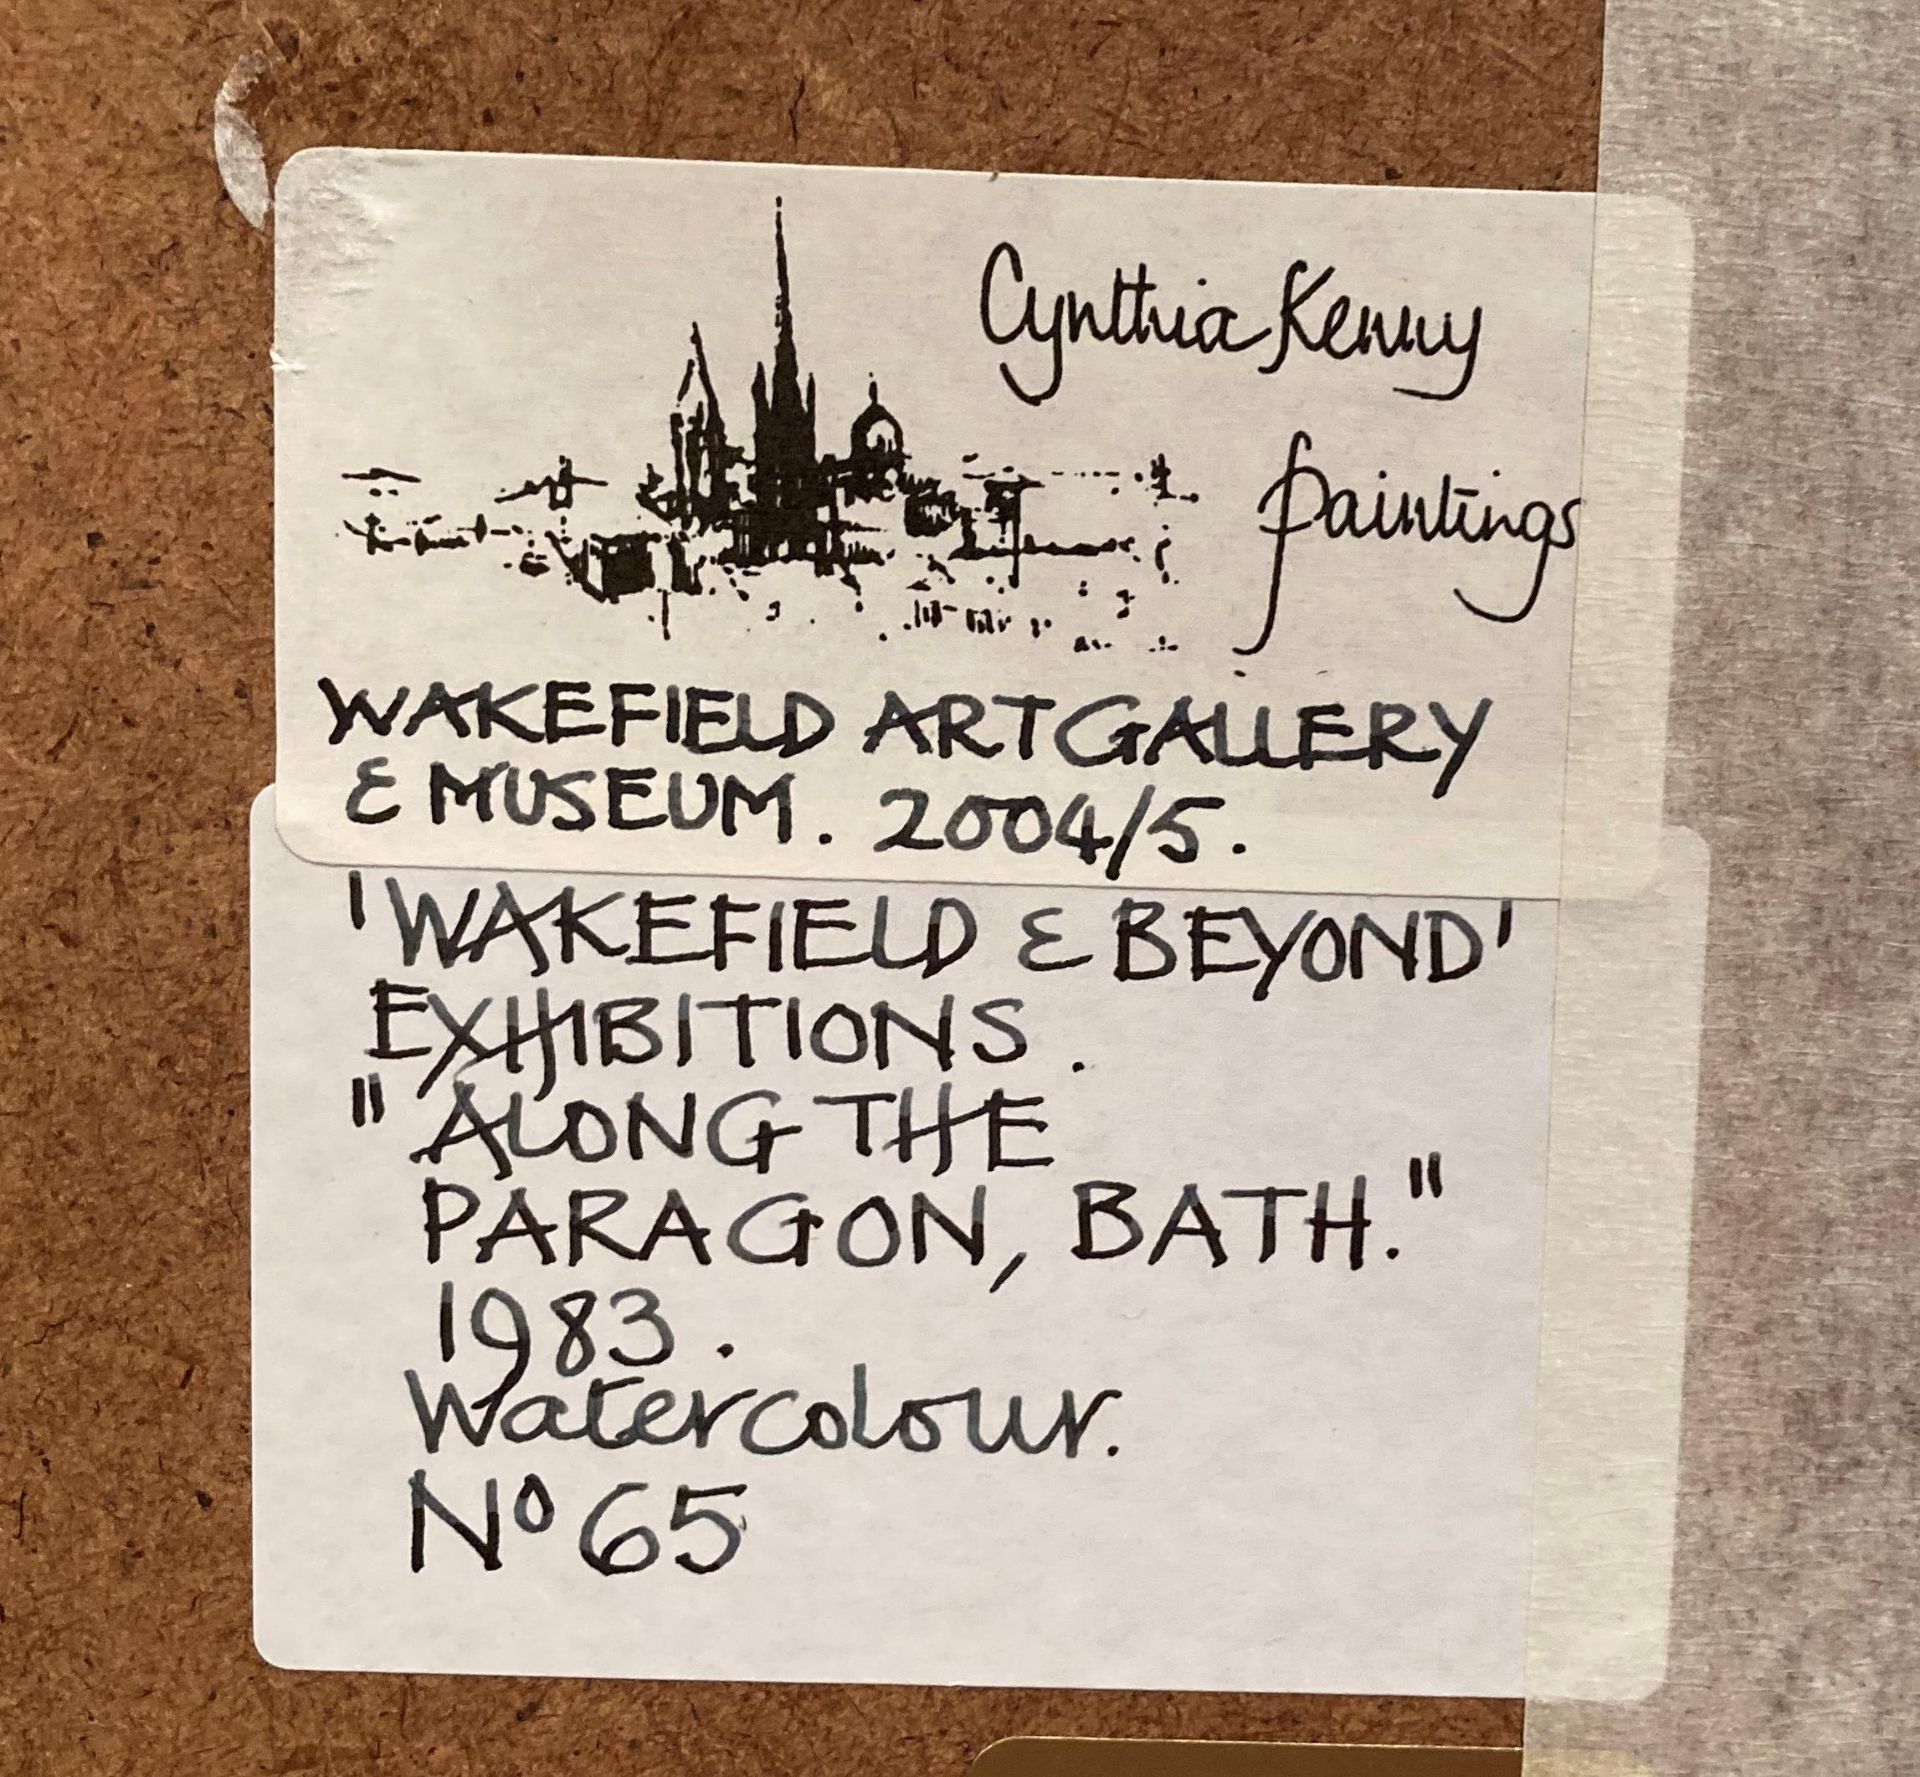 Cynthia Kenny
paintings
WAKEFIELD ART GALLERY
& MUSEUM. 2004/5.
'WAKEFIELD & BEYOND'
EXHIBITIONS.
"ALONG THE
PARAGON, BATH."
1983.
Watercolour.
Nº 65